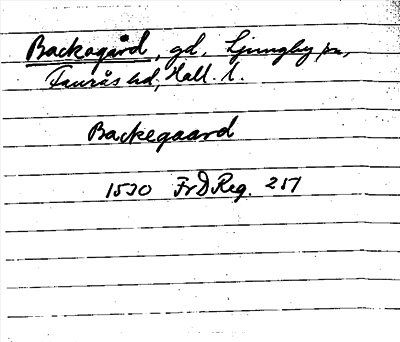 Backagård, gd, Ljungby sn,
Faurås hd, Hall. l.
Backegaard
1530 FrDReg. 251